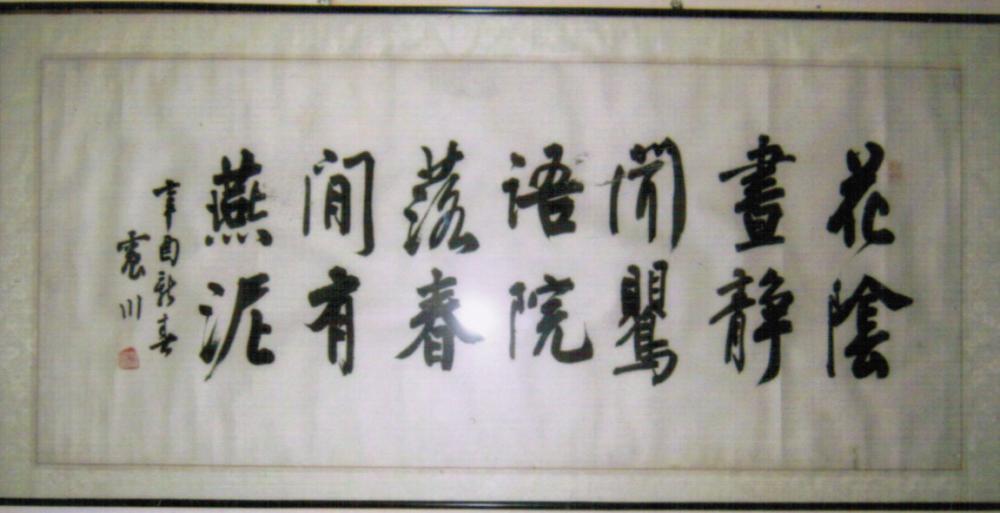 花陰
晝靜
聞鸎
語院
落春
閒有
燕泥
辛酉新春
川